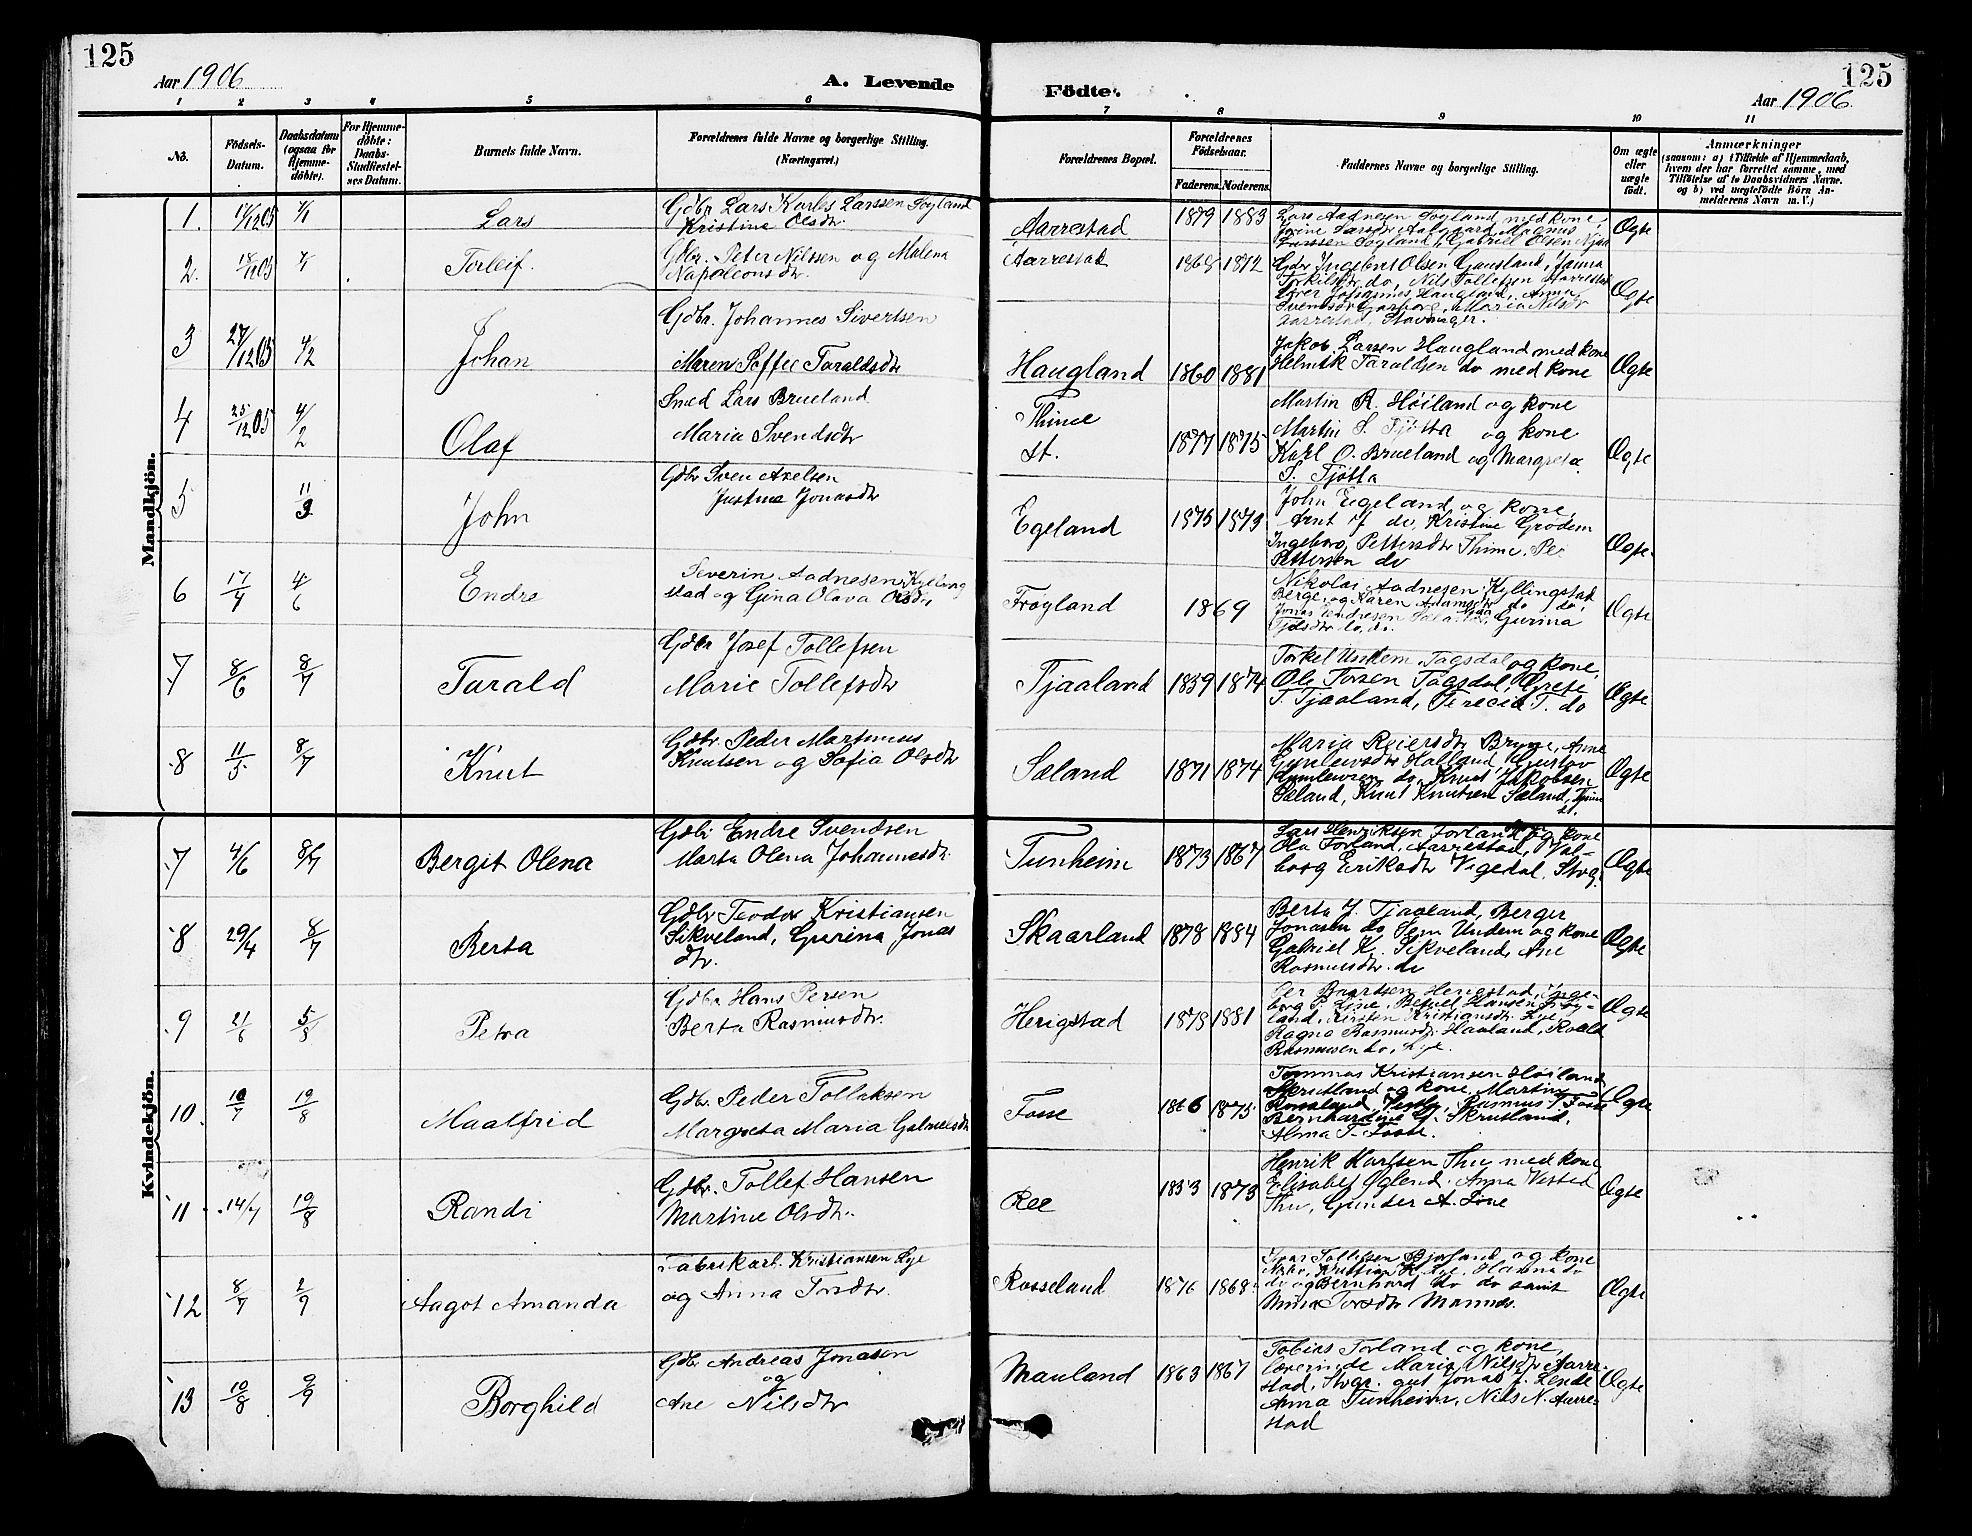 125
Aar 1906
A. Levende
Födte.
Aar 1906
125
1 2 3 4 5 6 7 8 9 10 11
No.
Födsels-Datum.
Daabsdatum (ogsaa for Hjemme-döbte).
For Hjemme-döbte: Daabs-Stadfæstel-ses Datum.
Barnets fulde Navn.
Forældrenes fulde Navne og borgerlige Stilling. (Næringsvei.)
Forældrenes Bopæl.
Forældrenes Födselsaar.
Faderens. Moderens.
Faddernes Navne og borgerlige Stilling.
Om ægte eller uægte födt.
Anmærkninger
(saasom: a) i Tilfælde af Hjemmedaab, hvem der har forrettet samme, med Tilföielse af to Daabsvidners Navne, og b) ved uægtefödte Börn An-melderens Navn m. V.)
Mandkjön.
1. 7/1 Lars
Gdbr. Lars Karles Larssen Fogland
Kristine Olsdtr
Aarrestad 1879 1883
Lars Aadnesen Fogland med kone,
Larssen Fogland, Gabriel Olsen
Ægte
2. 7/1 Torleif.
Gdbr. Peter Nilssen og Malena
Napoleonsdtr
Aarrestad 1868 1872
Gdbr Ingebret Olsen Gausland, Janna
Torkilsdtr do, Nils Tollefsen Aarrestad
Haugland, Anna
Svendsdtr Garborg, Maria Nilsdtr
Aarrestad, Stavanger.
Ægte
3 27/12 05 4/2 Johan
Gdbr. Johannes Sivertsen
Maren Soffie Taraldsdtr
Haugland 1860 1881
Jakob Larsen Haugland med kone
Helmik Taraldsen do med kone
Ægte
4 25/12 05 4/2 Olaf
Smed Lars Brueland
Maria Svendsdtr
Thime
st. 1877 1875
Martin R. Höiland og kone
Martin S. Tjötta og kone
Karl O. Brueland og Margreta
S. Tjötta
Ægte
5 11/3 John
Gdbr Sven Axelsen
Justine Jonasdtr
Egeland 1875 1879
John Egeland og kone,
Arnt J do, Kristine Grödem
Ingeborg Pettersdtr Thime, Per
Pettersen do
Ægte.
6 17/4 4/6 Endre
Severin Aadnesen Kylling
stad og Gina Olava Olsdtr
Fröyland 1869
Nikolai Aadnesen Kyllingstad
Berge, og Karen Adamsdtr do do,
Gurina
Ægte
7 8/6 8/7 Tarald
Gdbr Josef Tollefsen
Marie Tollefsdtr
Tjaaland 1859 1874
Torkel Undem, Tagsdal og kone,
Ole Torsen Tagsdal, Grete
T. Tjaaland, T. do
Ægte
8 11/5 8/7 Knut
Gdbr. Peder Martinius
Knutsen og Sofia Olsdtr
Sæland 1871 1874
Maria Reiersdtr Bryne, Anne
Gunleivsdtr Halland, Gustav
Gunleivsen do, Knut Jakobsen
Sæland, Knut Knutsen Sæland, Thime
st.
Ægte
Kvindekjön.
7 4/6 8/7 Bergit Olena
Gdbr Endre Svendsen
Marta Olena Johannesdtr.
Tunheim 1873 1867
Lars Henriksen Torland og kone
Ola Torland, Aarrestad, Val-
borg Eriksdtr Vegedal, Stvg.
Ægte
8 29/4 8/7 Berta
Gdbr Teodor Kristiansen
Sikveland, Gurina Jonas
dtr.
Skaarland 1878 1884
Berta J. Tjaaland, Berger
Jonasen do, Undem og kone
Gabriel K. Sikveland, Ane
Rasmusdtr. do
Ægte
9 21/6 5/8 Petra
Gdbr Hans Persen
Berta Rasmusdtr.
Herigstad 1878 1881
Per Baardsen Herigstad, Inge-
borg P. Line, Hansen Fröy-
land, Kirsten Kristiansdtr. Lye,
Ragna Rasmusdtr. Haaland, Roald
Rasmussen do, Lye.
Ægte
10. 10/7 19/8 Maalfrid
Gdbr. Peder Tollaksen
Margreta Maria Gabrielsdtr
Fosse 1866 1875
Tommas Kristiansen Höiland
Skrutland og kone, Martin
Rosseland, Rasmus T. Fosse
Bernhardine G. Skrutland,
Alma T. Fosse.
Ægte
11 14/7 19/8 Randi
Gdbr. Tollef Hansen
Martine Olsdtr.
Ree 1853 1873
Henrik Karlsen Thu med kone
Elisabet Öglend. Anna Vestad
Thu, Gunder A. Line
Ægte
12 8/7 2/9 Aagot Amanda
Fabrikarb. Kristiansen Lye
og Anna Torsdtr.
Rosseland 1876 1868
Ivar Tollefsen Bjorland og kone
Hanna do
do og Bernhard do do samt
Mina Torsdtr
Ægte
13 19/8 9/9 Borghild
Gdbr Andreas Jonasen
og
Ane Nilsdtr
Mauland 1863 1867
Tobias Torland og kone,
lærerinde Maria Nilsdtr Aarre-
stad, Stvgr. gut Jonas J. Lende
Anna Tunheim, Nils N. Aarre-
stad
Ægte